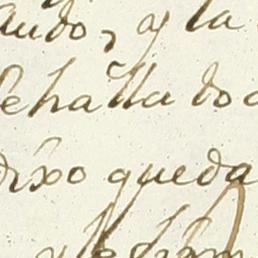 ando, y la
se ha lla do
dixo queda